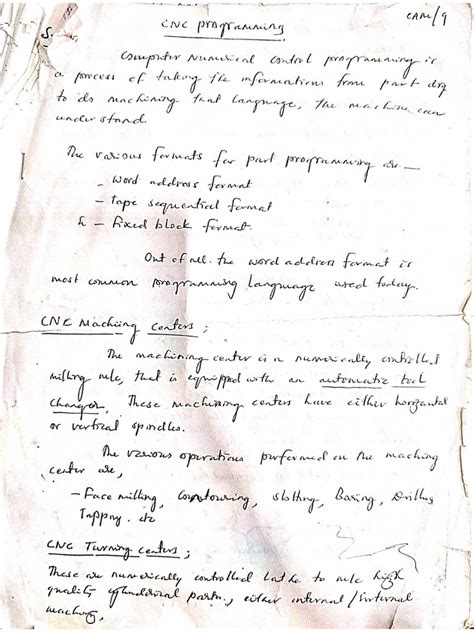 CAM/9
CNC programming
S.
Computer Numerical control programming is
a process of taking the informations from part drg
to do machining that language, the machine can
understand.
The various formats for part programming are —
- Word address format
- Tape sequential format
- Fixed block format.
Out of all. the word address format is
most common programming language used today.
CNC Machiing centers ;
The machining center is a numerically controlled
milling m/c, that is equipped with an automatic tool
changer. These machining centers have either horizontal
or vertical spindles.
The various operations performed on the machining
center are,
- Face milling, Contouring, slotting, Boring, Drilling
Tapping. etc
CNC Turning centers ;
These are numerically controlled Lathe to m/c high
quality cylindrical parts., either internal / External
maching,